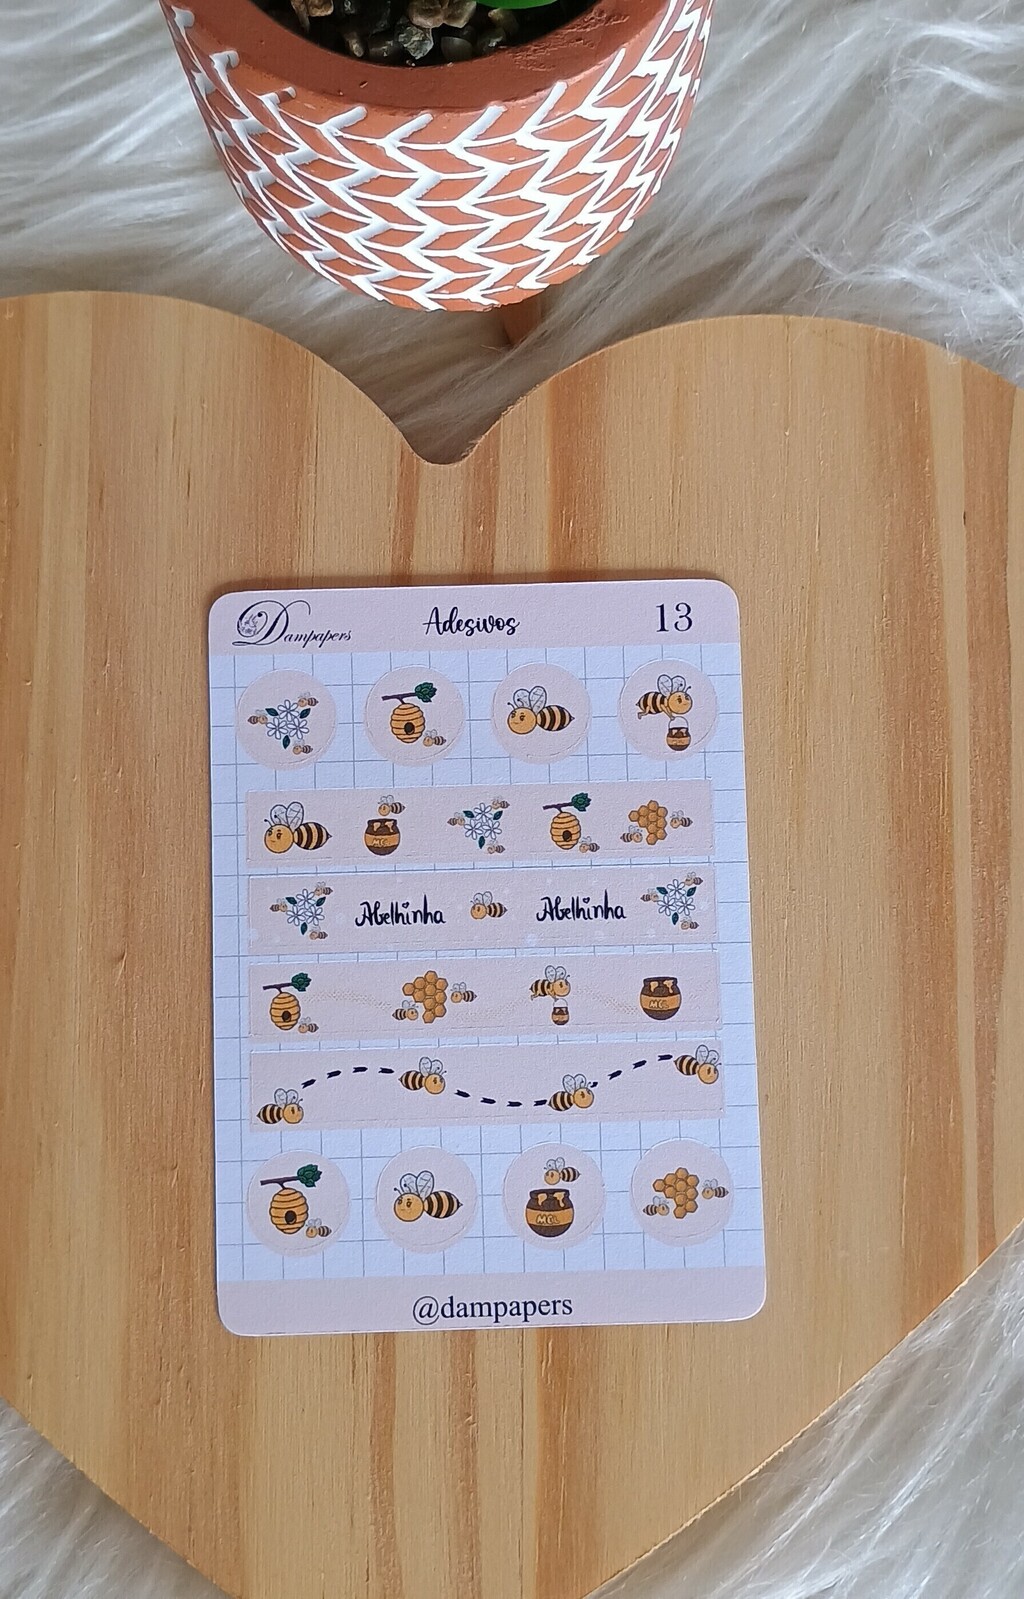 Dampapers Adesivos 13
MEL
Abelhinha Abelhinha
MEL
MEL
@dampapers